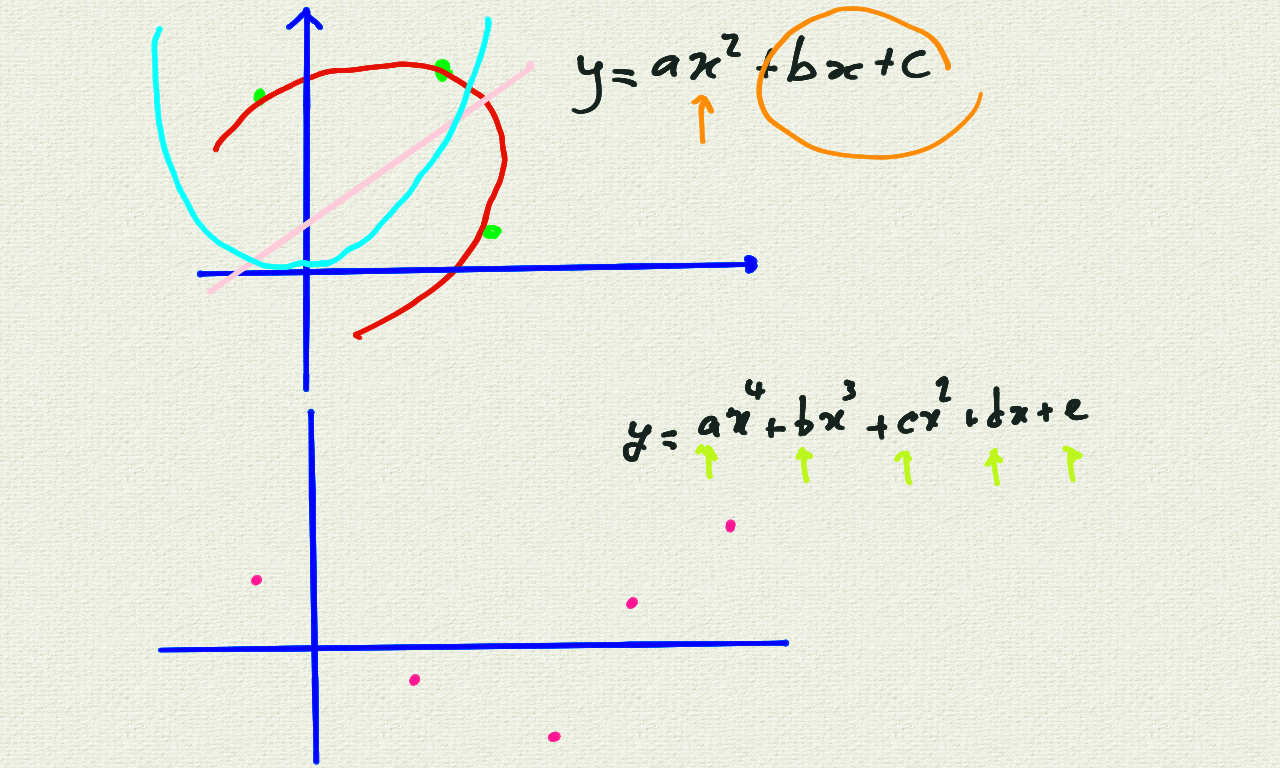 y = ax² + bx + c
y = ax⁴ + bx³ + cx² + dx + e